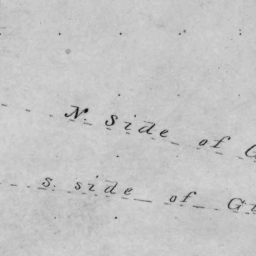 N. Side of
S. side of